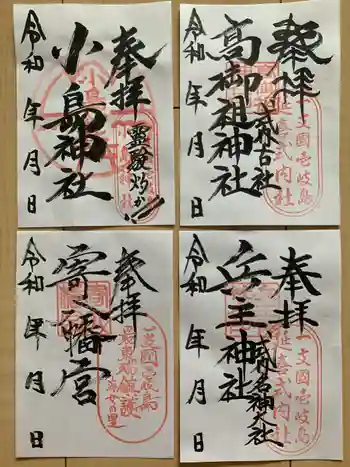 奉拝
小島神社
令和 年 月 日
奉拝
高御祖神社
式内古社
令和 年 月 日
一支國壱岐島
延喜式内社
奉拝
寄八幡宮
令和 年 月 日
一支國壱岐島
奉拝
兵主神社
式内名神大社
令和 年 月 日
一支國壱岐島
延喜式内社